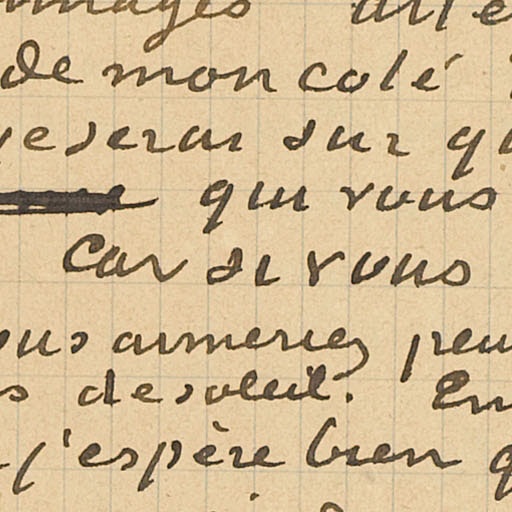 de mon colé
je serai sur q
qui vous
Car si vous
ous aimeriez peu
s de soleil. En
j'espère bien q